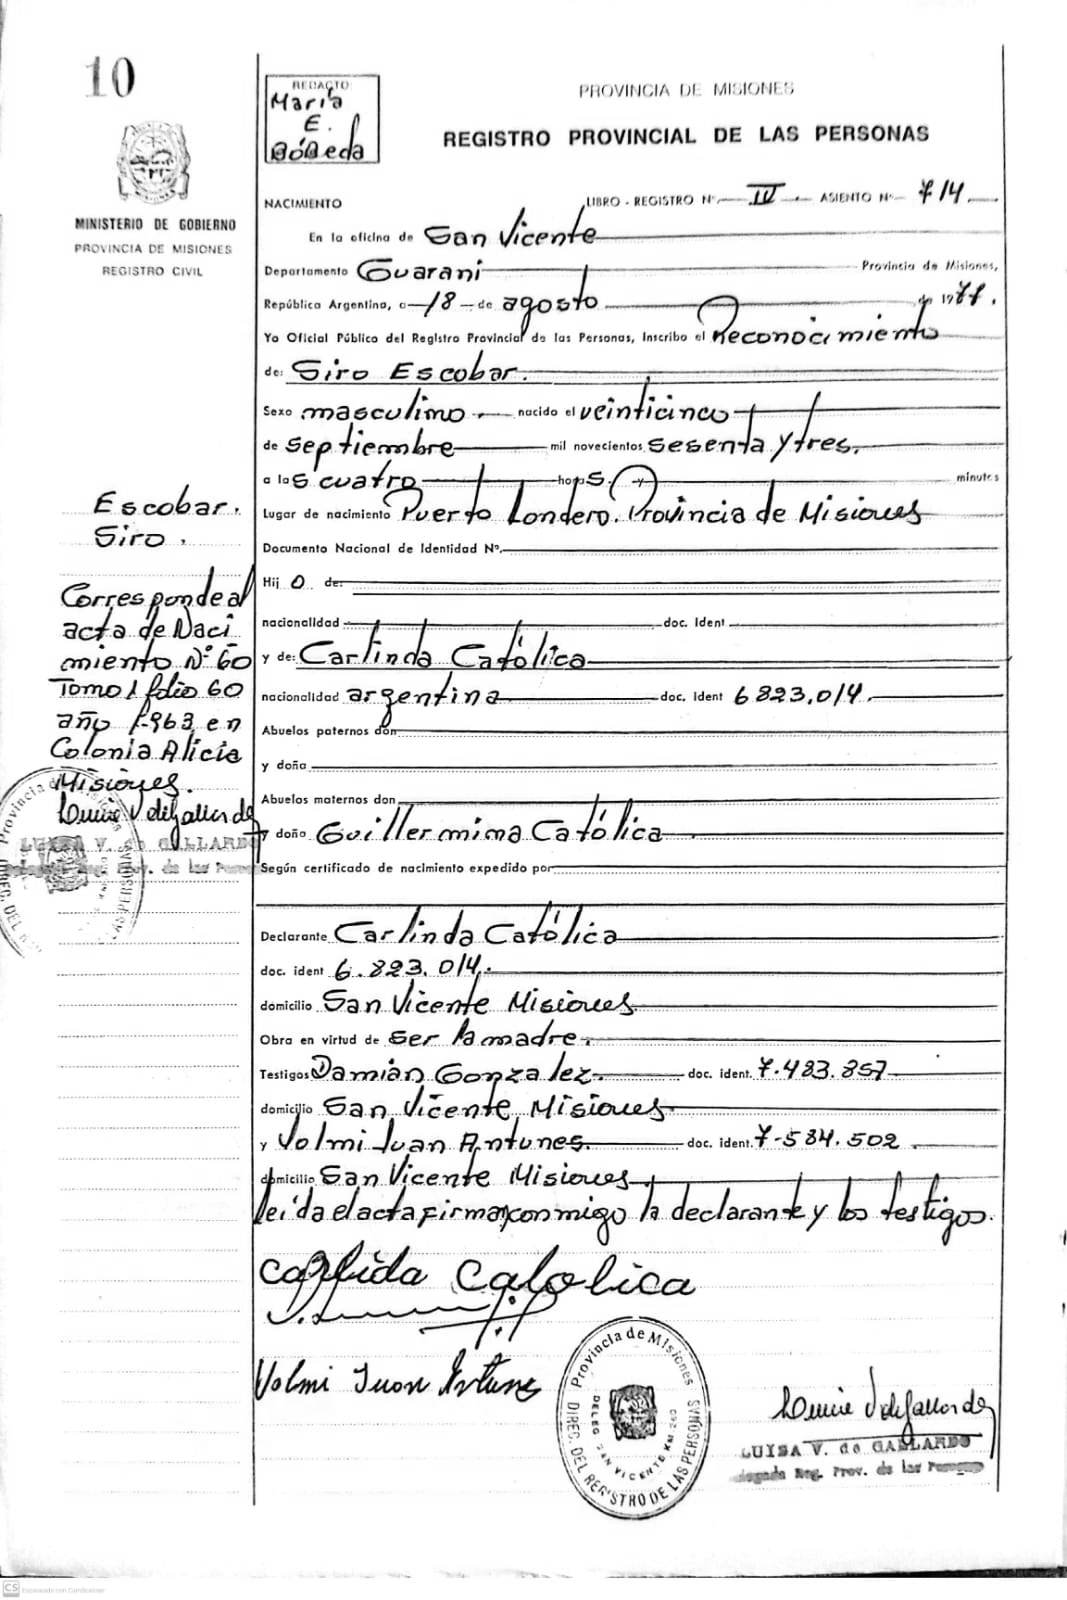 10
MINISTERIO DE GOBIERNO
PROVINCIA DE MISIONES
REGISTRO CIVIL
REDACTO
María
E.
Bóveda
PROVINCIA DE MISIONES
REGISTRO PROVINCIAL DE LAS PERSONAS
NACIMIENTO LIBRO - REGISTRO Nº IV ASIENTO Nº 714.
En la oficina de San Vicente
Departamento Guaraní Provincia de Misiones,
República Argentina, a 18 de agosto de 1977.
Yo Oficial Público del Registro Provincial de las Personas, Inscribo el Reconocimiento
de: Siro Escobar.
Sexo masculino nacido el veinticinco
de septiembre mil novecientos sesenta y tres.
a las cuatro horas. y minutos
Lugar de nacimiento Puerto Londero. Provincia de Misiones
Documento Nacional de Identidad Nº.
Hijo de:
nacionalidad doc. Ident
y de: Carlinda Católica
nacionalidad argentina doc. Ident 6823.014.
Abuelos paternos don
y doña
Abuelos maternos don
y doña Guillermina Católica
Según certificado de nacimiento expedido por
Declarante Carlinda Católica
doc. ident 6.823.014.
domicilio San Vicente Misiones
Obra en virtud de ser la madre.
Testigos Damián Gonzalez. doc. ident. 7.483.857
domicilio San Vicente Misiones
y Volmi Juan Antunes. doc. ident. 7-584.502
domicilio San Vicente Misiones
leída el acta firman conmigo la declarante y los testigos.
Carlida Catolica
Volmi Juan Antunes
Provincia de Misiones
DIREC. DEL REGISTRO DE LAS PERSONAS
DELEG. SAN VICENTE KM 260
LUISA V. de GALLARDO
Delegada Reg. Prov. de las Personas
Escobar.
Siro.
Corresponde al
acta de Naci
miento Nº 60
Tomo 1 folio 60
año 1.963 en
Colonia Alicia
Misiones.
LUISA V. de GALLARDO
Reg. Prov. de las Personas
Provincia de Misiones
DIREC. DEL
LAS PERSONAS
CS Escaneado con CamScanner